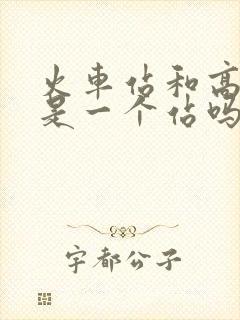 火車佔和高
是一个佔吗
宇都公子